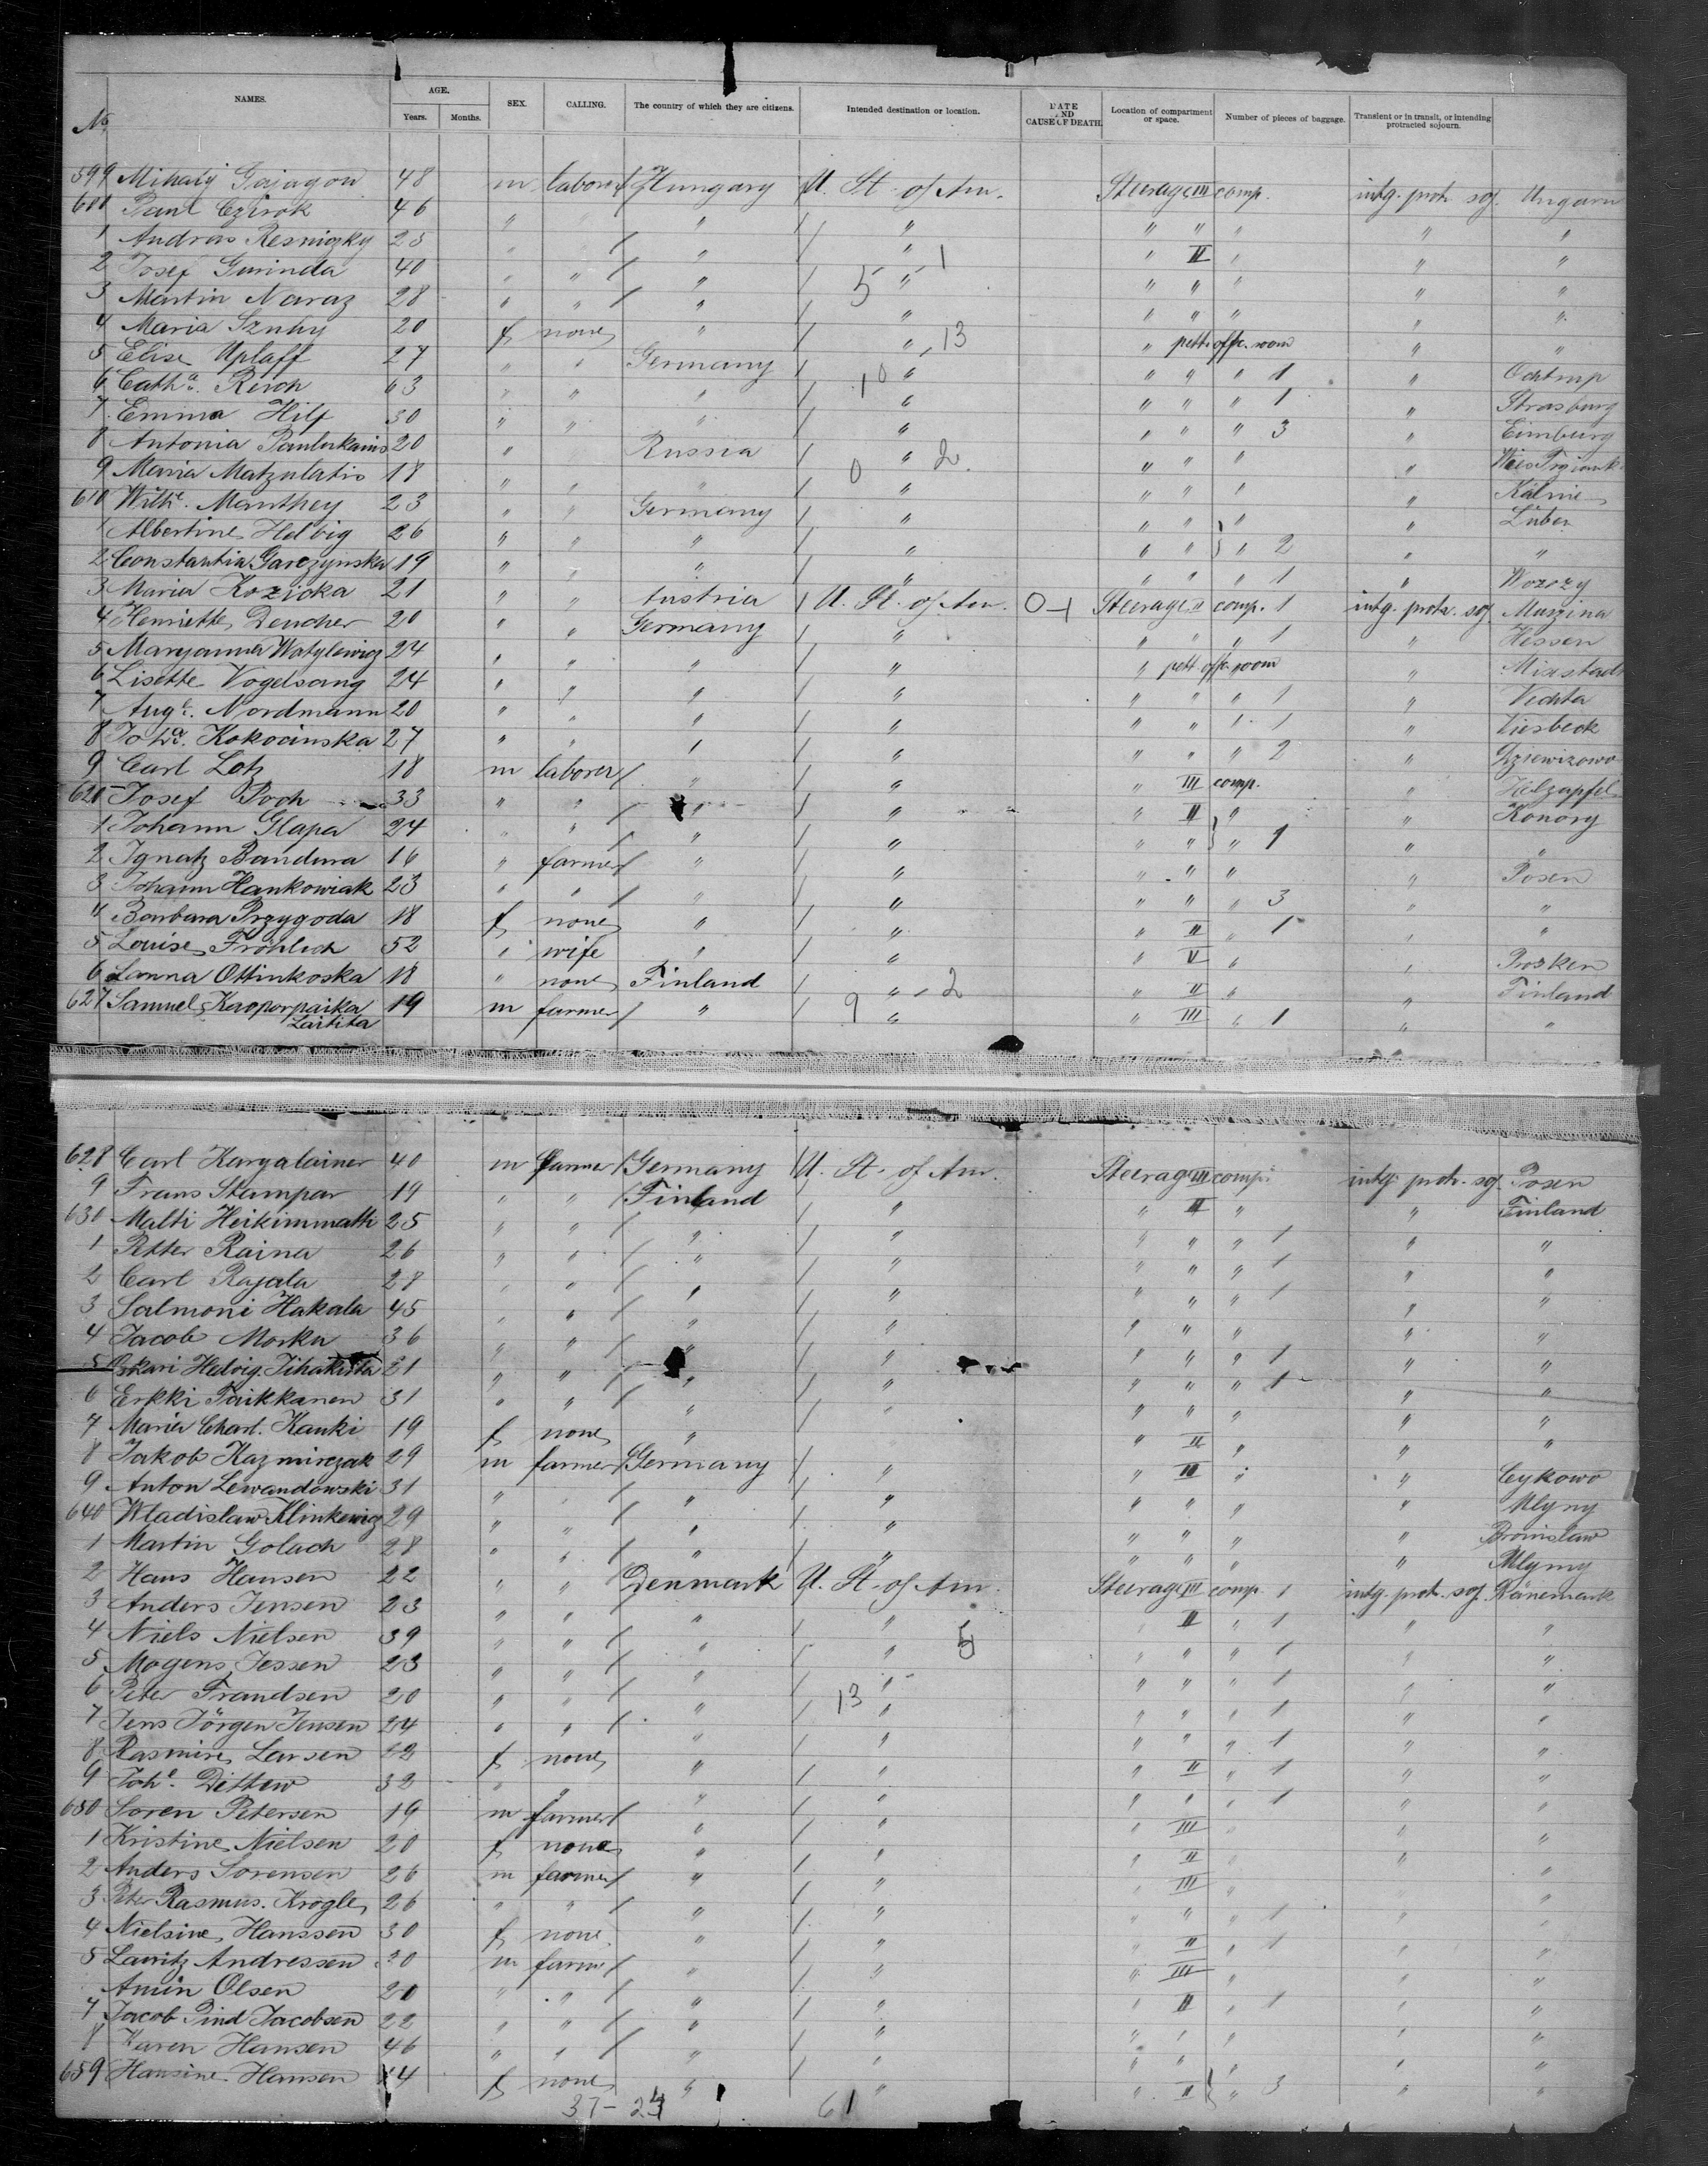 No. NAMES. AGE. Years. Months. SEX. CALLING. The country of which they are citizens. Intended destination or location. DATE AND CAUSE OF DEATH. Location of compartment or space. Number of pieces of baggage. Transient or in transit, or intending protracted sojourn.
599 Mihaly Gajagon 48 m laborer Hungary U. St. of Am. Steerage III comp. intg. protr. soj. Ungarn
600 Paul Czirok 46 " " " " " " " "
1 Andras Resnigky 25 " " " " II " " "
2 Josef Gurinda 40 " " " 5 " 1 " " " " "
3 Martin Naraz 28 " " " " " " " " "
4 Maria 20 f none " " 13 " pett. offr. room " "
5 Elise Uplaff 27 " " Germany " " " " 1 " Ochtrup
6 Catha. Reich 63 " " " 10 " " " 1 " Strasburg
7 Emma Hilf 30 " " " " " " " 3 " Eimburg
8 Antonia 20 " Russia " 2 " " " "
9 Maria Matzulatis 18 " " " 0 " " " " " Kalnie
610 Withe. Manthey 23 " " Germany " " " " " Luben
1 Albertine Helbig 26 " " " " " " " 2 " "
2 Constantia Garczynska 19 " " " " " " " 1 "
3 Maria Kozicka 21 " " Austria U. St. of Am. 0-1 Steerage II comp. 1 intg. protr. soj. Muszina
4 Henriette Deucher 20 " " Germany " " " " 1 " Hessen
5 Maryanna Watylewicz 24 " " " " " pett. offr. room " Mixstadt
6 Lisette Vogelsang 24 " " " " " " " 1 " Vechta
7 Auge. Nordmann 20 " " " " " " " 1 " Viesbeck
8 Joha. Kokocinska 27 " " " " " " " 2 "
9 Carl Lotz 18 m laborer " " " III comp. " Holzapfel
620 Josef Poch 33 " " " " " II " " Konory
1 Johann Glapa 24 " " " " " " " 1 " "
2 Ignatz Bandura 16 " farmer " " " " " " Posen
3 Johann Hankowiak 23 " " " " " " " 3 " "
4 Barbara Przygoda 18 f none " " " II " 1 " "
5 Louise Fröhlich 52 " wife " " " V " " Prosken
6 Lanna Ottinkoska 18 " none Finland " 2 " II " " Finland
627 Samuel Kaoporpaika 19 m farmer " 9 " " III " 1 " "
Laitita
628 Carl Kargalainer 40 m farmer Germany U. St. of Am. Steerage III comp. intg. protr. soj. Posen
9 Frans Stampar 19 " " Finland " " III " " Finland
630 Malti Heikimmath 25 " " " " " " " 1 " "
1 Petter Raina 26 " " " " " " " 1 " "
2 Carl Rajala 28 " " " " " " " 1 " "
3 Salmoni Hakala 45 " " " " " " " " "
4 Jacob Morka 36 " " " " " " " 1 " "
5 Oskari Hedvig. 21 " " " " " " " 1 " "
6 Erkki Paikkanen 31 " " " " " " " " "
7 Maria Charl. Kauki 19 f none " " II " " "
8 Jakob Kazmirczak 29 m farmer Germany " " III " " Cykowo
9 Anton Lewandowski 31 " " " " " " " " Mlyny
640 Wladislaw Klinkewicz 29 " " " " " " " " Bronislaw
1 Martin Golach 28 " " " " " " " " Mlyny
2 Hans Hansen 22 " " Denmark U. St. of Am. Steerage III comp. 1 intg. protr. soj. Dänemark
3 Anders Jensen 23 " " " " " II " 1 " "
4 Niels Nielsen 39 " " " " 5 " " " 1 " "
5 Mogens Jessen 23 " " " " " " " 1 " "
6 Peter Frandsen 20 " " " 13 " " " " 1 " "
7 Jens Jörgen Jensen 24 " " " " " " " 1 " "
8 Rasmine Larsen 22 f none " " " II " 1 " "
9 Johe. Dittew 32 " " " " " " " 1 " "
650 Soren Petersen 19 m farmer " " " III " " "
1 Kristine Nielsen 20 f none " " " II " "
2 Anders Sorensen 26 m farmer " " " III " "
3 Peter Rasmus. Krogle 26 " " " " " " " 1 " "
4 Nielsine Hanssen 30 f none " " " II " 1 " "
5 Lauritz Andressen 30 m farmer " " " III " " "
Amin Olsen 20 " " " " " II " 1 " "
7 Jacob Pind Jacobsen 22 " " " " " " " " "
8 Karen Hansen 46 " " " " " " " " "
659 Hansine Hansen 44 f none " " " II " 3 " "
37 - 24 61